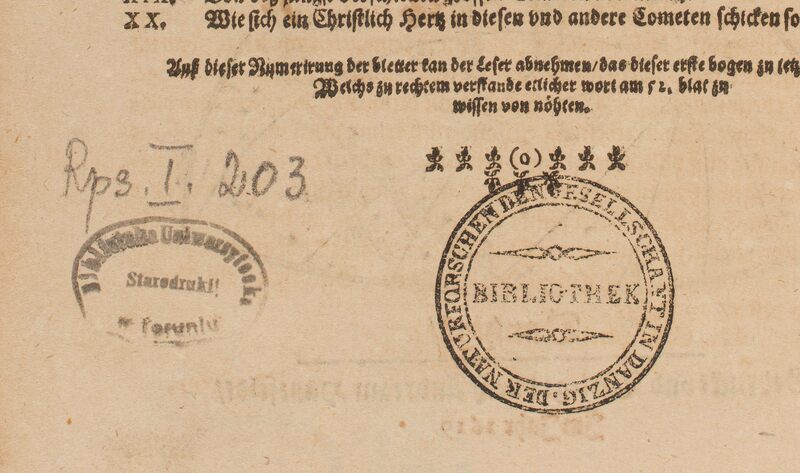 XX. Wie sich ein Christlich Hertz in diesen vnd andere Cometen schicken so
Auß dieser Numerirung der bletter kan der Leser abnehmen/ das dieser erste bogen zu letz
Welchs zu rechtem verstande etlicher wort am 52. blat zu
wissen von nöhten.
(o)
Rps. I. 203
Biblioteka Uniwersyteck.
Starodruki
w Toruniu
DER NATURFORSCHENDEN GESELLSCHAFT IN DANZIG.
BIBLIOTHEK